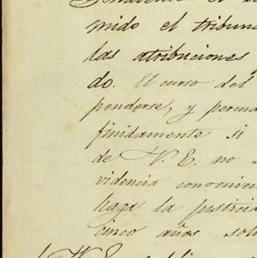 guido el tribun
las atribuciones
do. El curso del
penderse, y perma
finidamente si
de V. E. no
videncia convenien
haga la justicia
cinco años sol